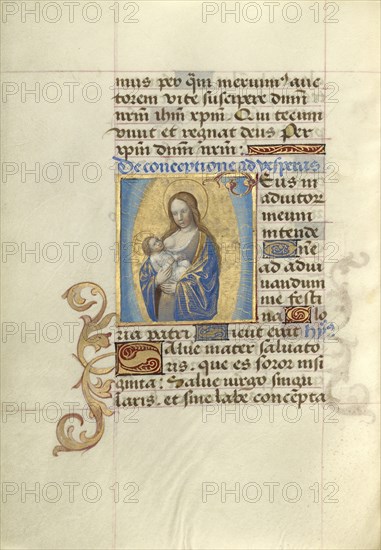 mus per qm meruim9 auc
torem vite suscipere dnm
nrm ihm xpm. Qui tecum
vivit et regnat deus Per
xpm dnm nrm:
De conceptione ad vesperas
Deus in
adiutor
meum
intende
Dne
ad adiu
uandum
me festi
na Glo
ria patri Sicut erat hym
Salue mater saluato
ris. que es soror nisi
ginta: Salue virgo singu
laris. et sine labe concepta
PHOTO12